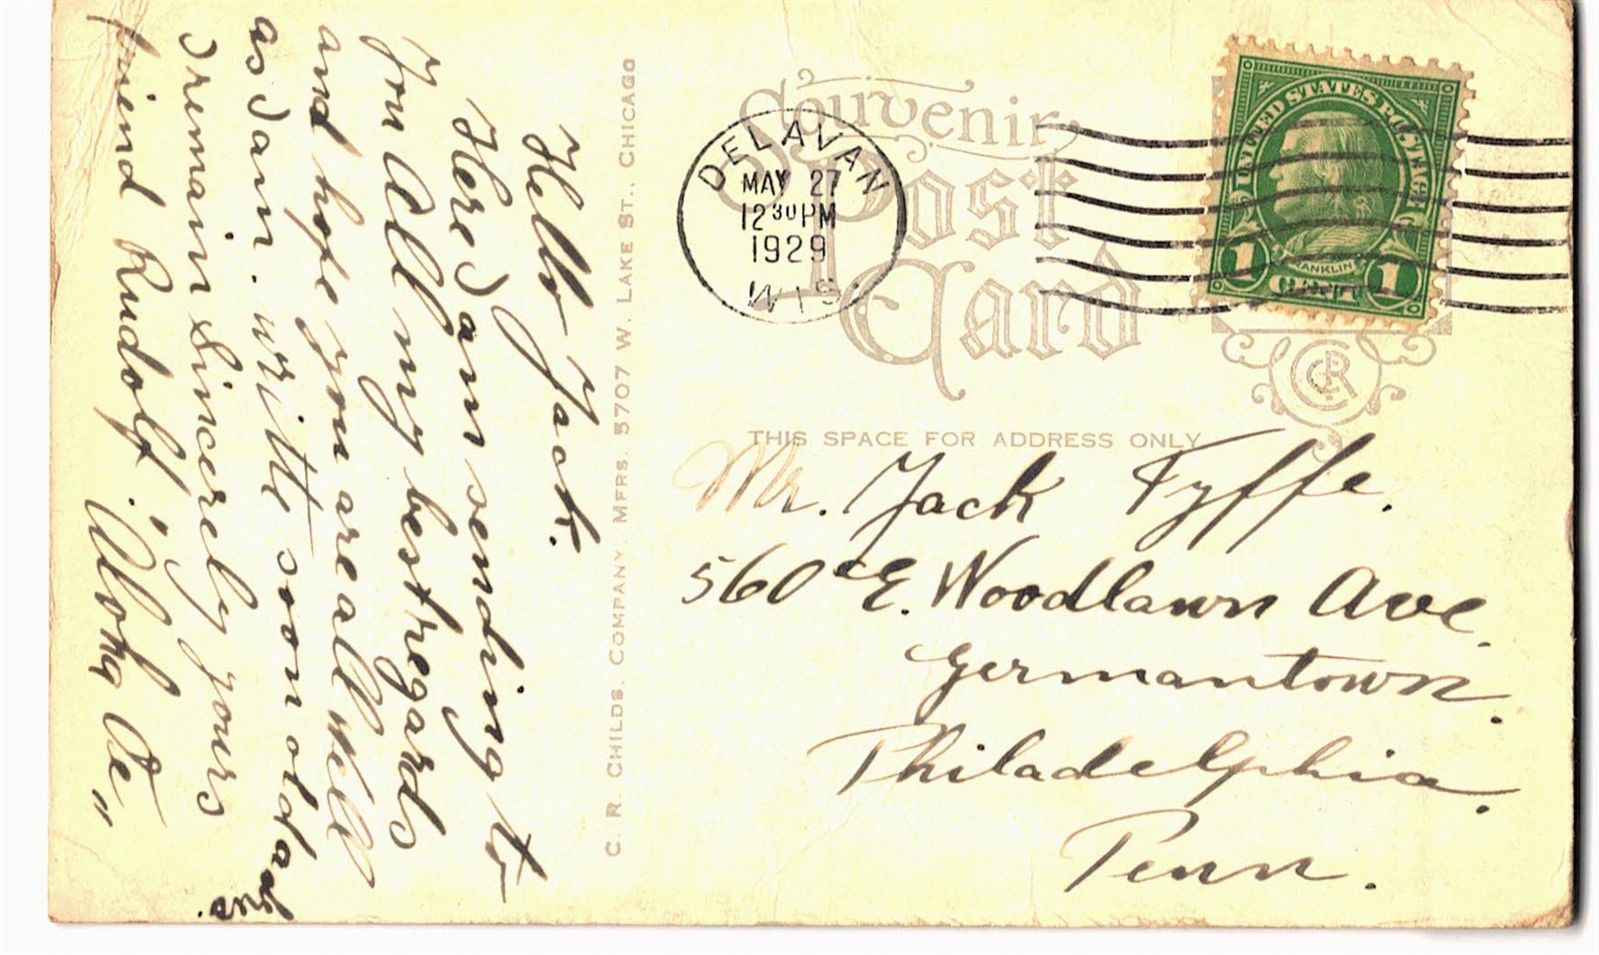 Hello Jack.
Here I am sending to
you all my best regards
and hope you are all well
as I am. write soon old
I remain Sincerely yours
friend Rudolf. "Aloha Oe"
C. R. CHILDS. COMPANY. MFRS. 5707 W. LAKE ST., CHICAGO
Souvenir
Post
Card
DELAVAN
MAY 27
12 30 PM
1929
WIS.
UNITED STATES POSTAGE
FRANKLIN
1 CENT 1
CRC
THIS SPACE FOR ADDRESS ONLY
Mr. Jack Fyffe.
560 E. Woodlawn Ave.
Germantown.
Philadelphia.
Penn.